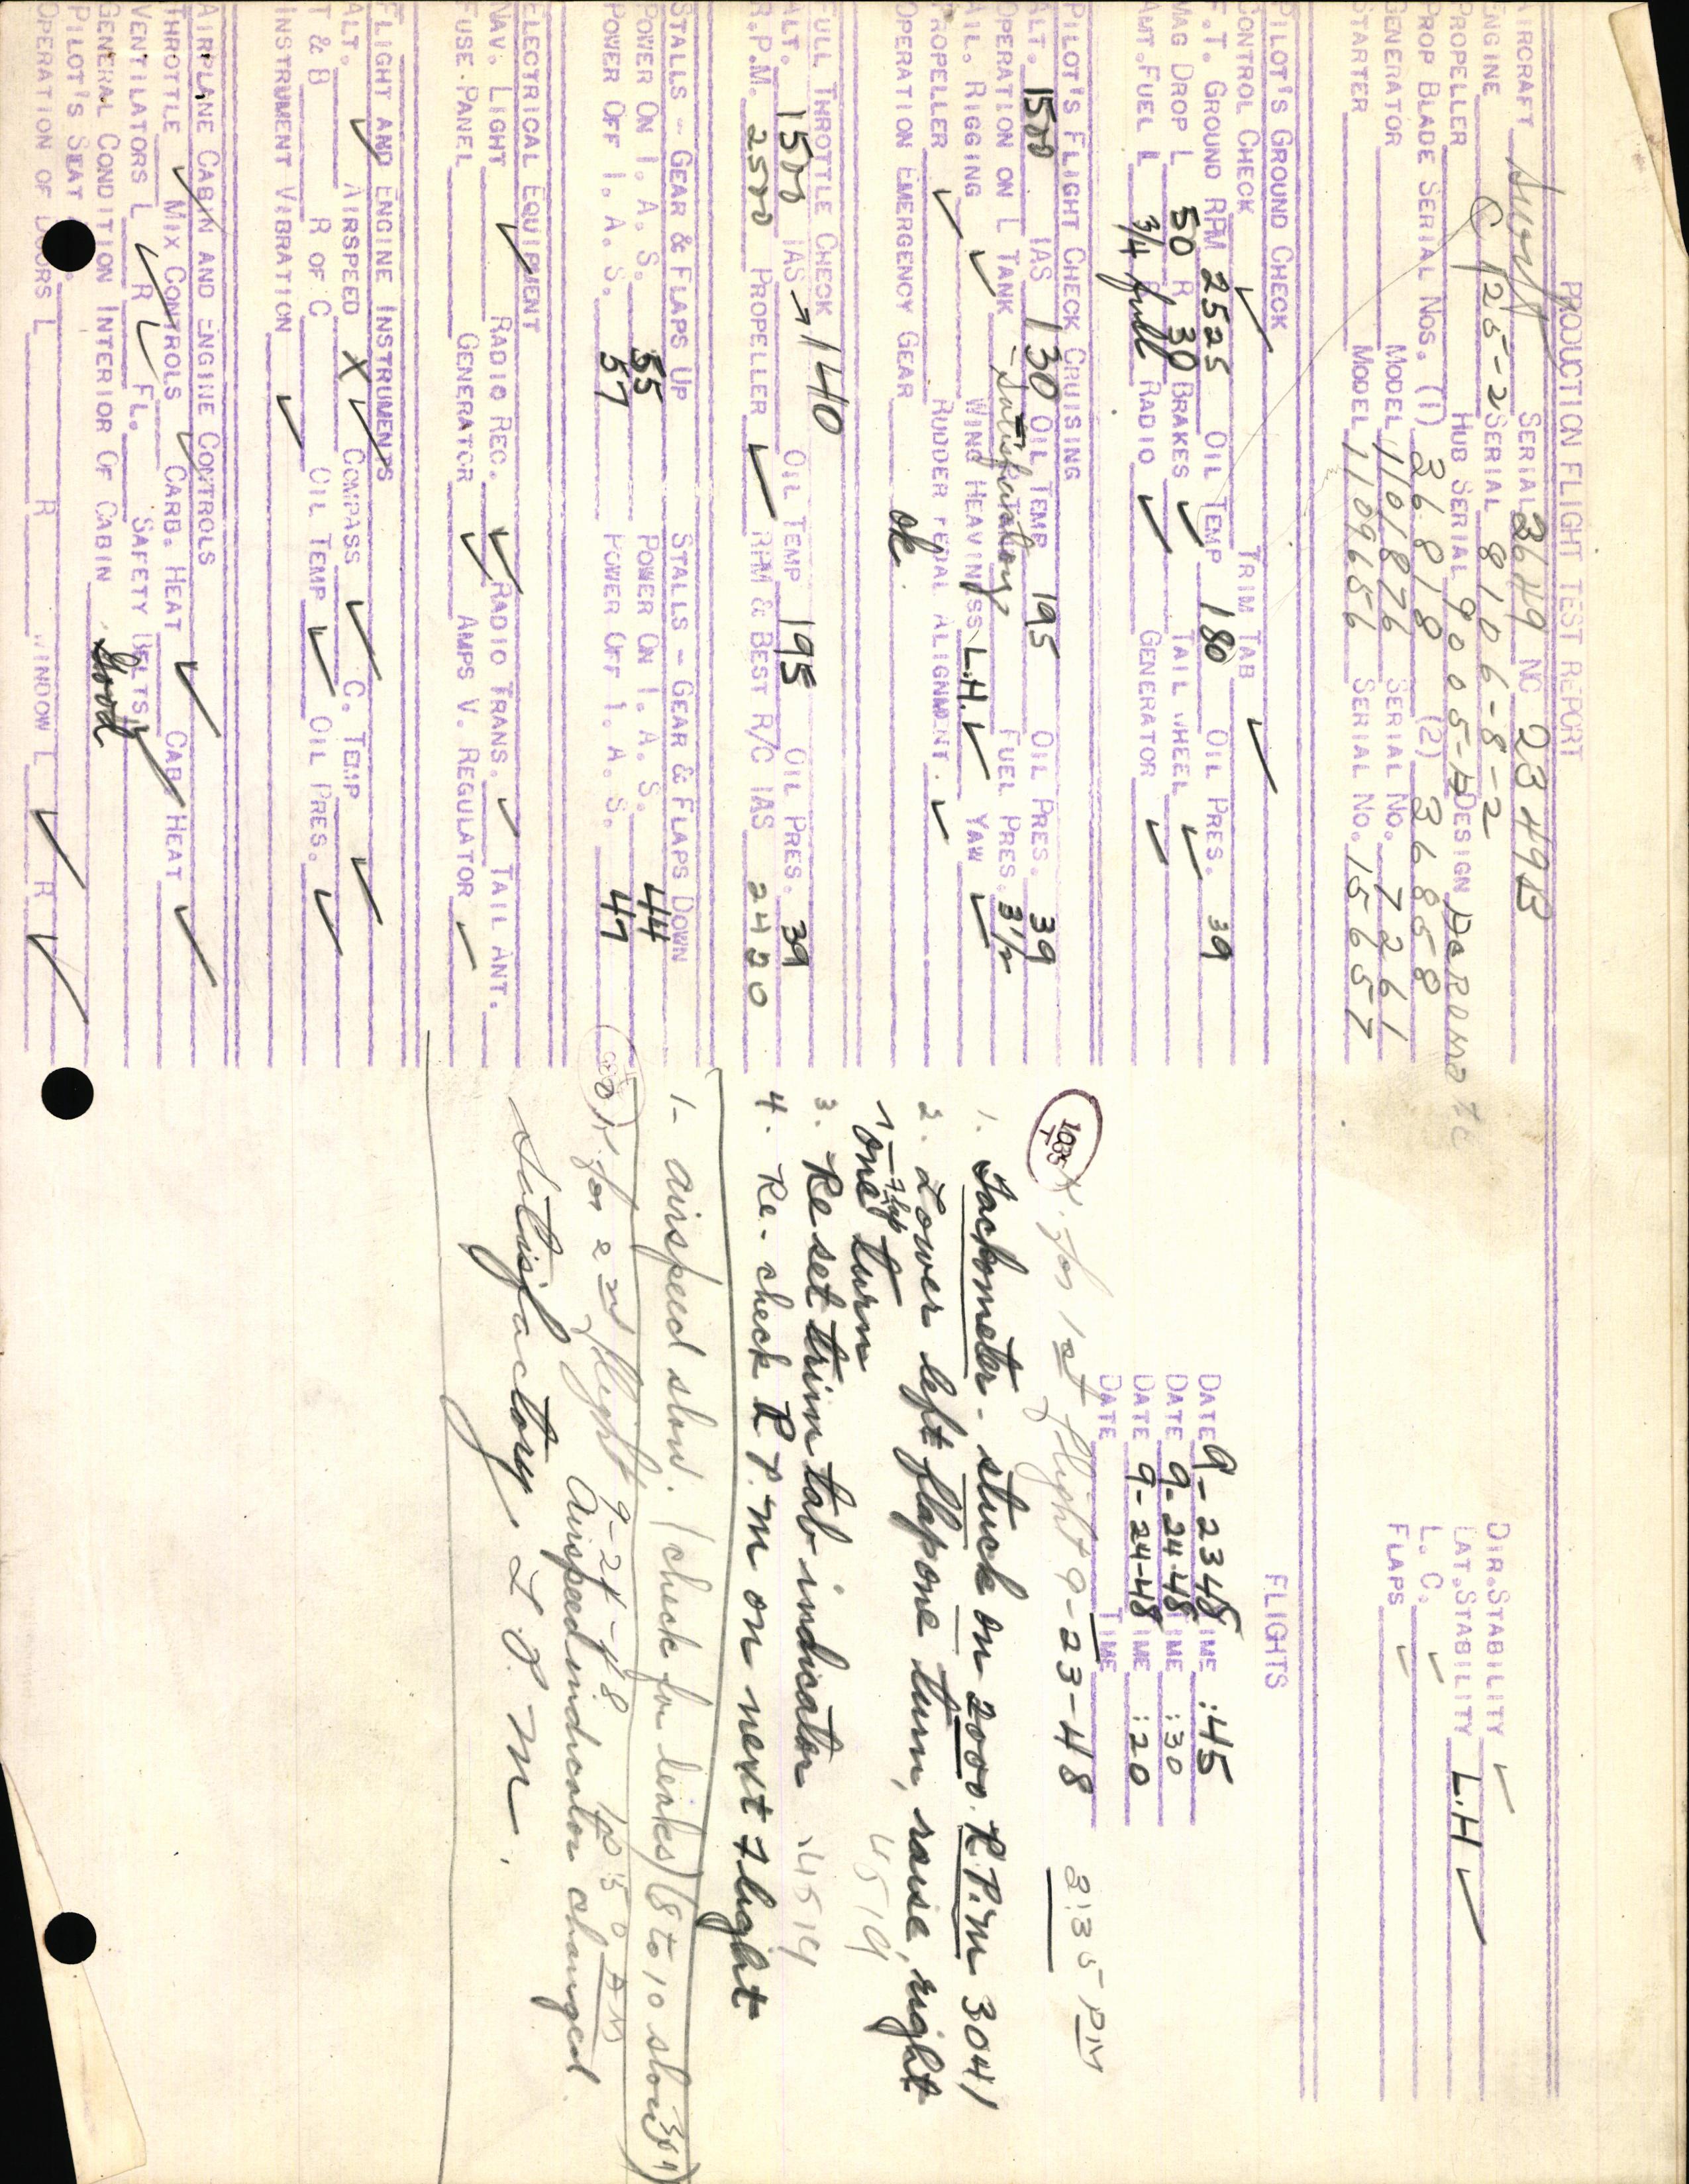 PRODUCTION FLIGHT TEST REPORT
AIRCRAFT Swift SERIAL 3649 NC 2349B
ENGINE C 125-2 SERIAL 8106-8-2
PROPELLER HUB SERIAL 90005-A DESIGN
PROP BLADE SERIAL NOS. (1) 36818 (2) 36858
GENERATOR MODEL 1101876 SERIAL NO. 7261
STARTER MODEL 1109656 SERIAL NO. 15657
DIR. STABILITY ✓
LAT. STABILITY L.H ✓
L. C. ✓
FLAPS ✓
PILOT'S GROUND CHECK
CONTROL CHECK ✓ TRIM TAB ✓
F.T. GROUND RPM 2525 OIL TEMP 180 OIL PRES. 39
MAG DROP L 50 R 30 BRAKES ✓ TAIL WHEEL ✓
AMT. FUEL L 3/4 R full RADIO ✓ GENERATOR ✓
FLIGHTS
DATE 9-23-48 TIME :45
DATE 9-24-48 TIME :30
DATE 9-24-48 TIME :20
DATE TIME
PILOT'S FLIGHT CHECK CRUISING
ALT. 1500 IAS 130 OIL TEMP 195 OIL PRES. 39
OPERATION ON L TANK - Satisfactory FUEL PRES. 3 1/2
AIL. RIGGING ✓ WING HEAVINESS L.H. ✓ YAW ✓
PROPELLER ✓ RUDDER PEDAL ALIGNMENT. ✓
OPERATION EMERGENCY GEAR ok.
FULL THROTTLE CHECK
ALT. 1500 IAS → 140 OIL TEMP 195 OIL PRES. 39
R.P.M. 2500 PROPELLER ✓ RPM & BEST R/C IAS 2420
STALLS - GEAR & FLAPS UP STALLS - GEAR & FLAPS DOWN
POWER ON I. A. S. 55 POWER ON I. A. S. 44
POWER OFF I. A. S. 57 POWER OFF I. A. S. 47
ELECTRICAL EQUIPMENT
NAV. LIGHT ✓ RADIO REC. ✓ RADIO TRANS. ✓ TAIL ANT.
FUSE PANEL GENERATOR ✓ AMPS V. REGULATOR ✓
FLIGHT AND ENGINE INSTRUMENTS
ALT. ✓ AIRSPEED X ✓ COMPASS ✓ C. TEMP ✓
T & B R OF C OIL TEMP ✓ OIL PRES. ✓
INSTRUMENT VIBRATION ✓
AIRPLANE CABIN AND ENGINE CONTROLS
THROTTLE ✓ MIX CONTROLS ✓ CARB. HEAT ✓ CAB HEAT ✓
VENTILATORS L ✓ R ✓ FL. SAFETY BELTS ✓
GENERAL CONDITION INTERIOR OF CABIN Good
PILOT'S SEAT
OPERATION OF DOORS L R WINDOW L ✓ R ✓
for 1st flight 9-23-48 3:35 PM
1. Tachometer - stuck on 2000 R.P.M 3041
2. Lower left flap one turn, raise, right
flap one turn 4519
3. Reset trim tab indicator 4519
4. Re-check R.P.M on next flight
1- airspeed slow. (check for leaks) (8 to 10 slow)
for 2nd flight 9-24-48 AM
Airspeed indicator changed.
Satisfactory.